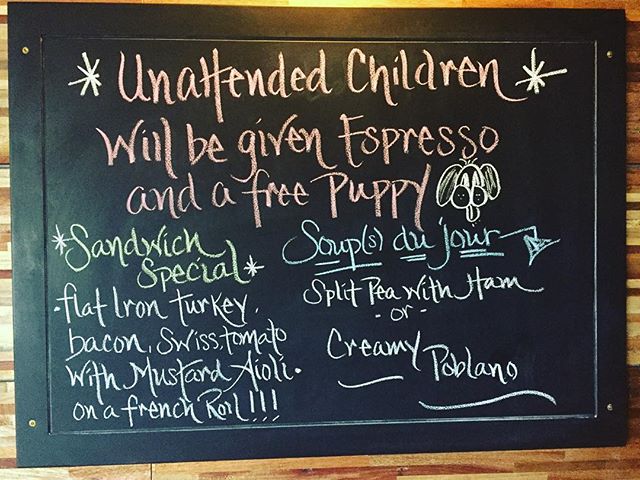 * Unattended Children *
Will be given Espresso
and a free Puppy
*Sandwich
Special*
·flat Iron turkey,
bacon, Swiss, tomato
with Mustard Aioli·
on a french Roll!!!
Soup(s) du jour
Split Pea With Ham
- or -
Creamy Poblano